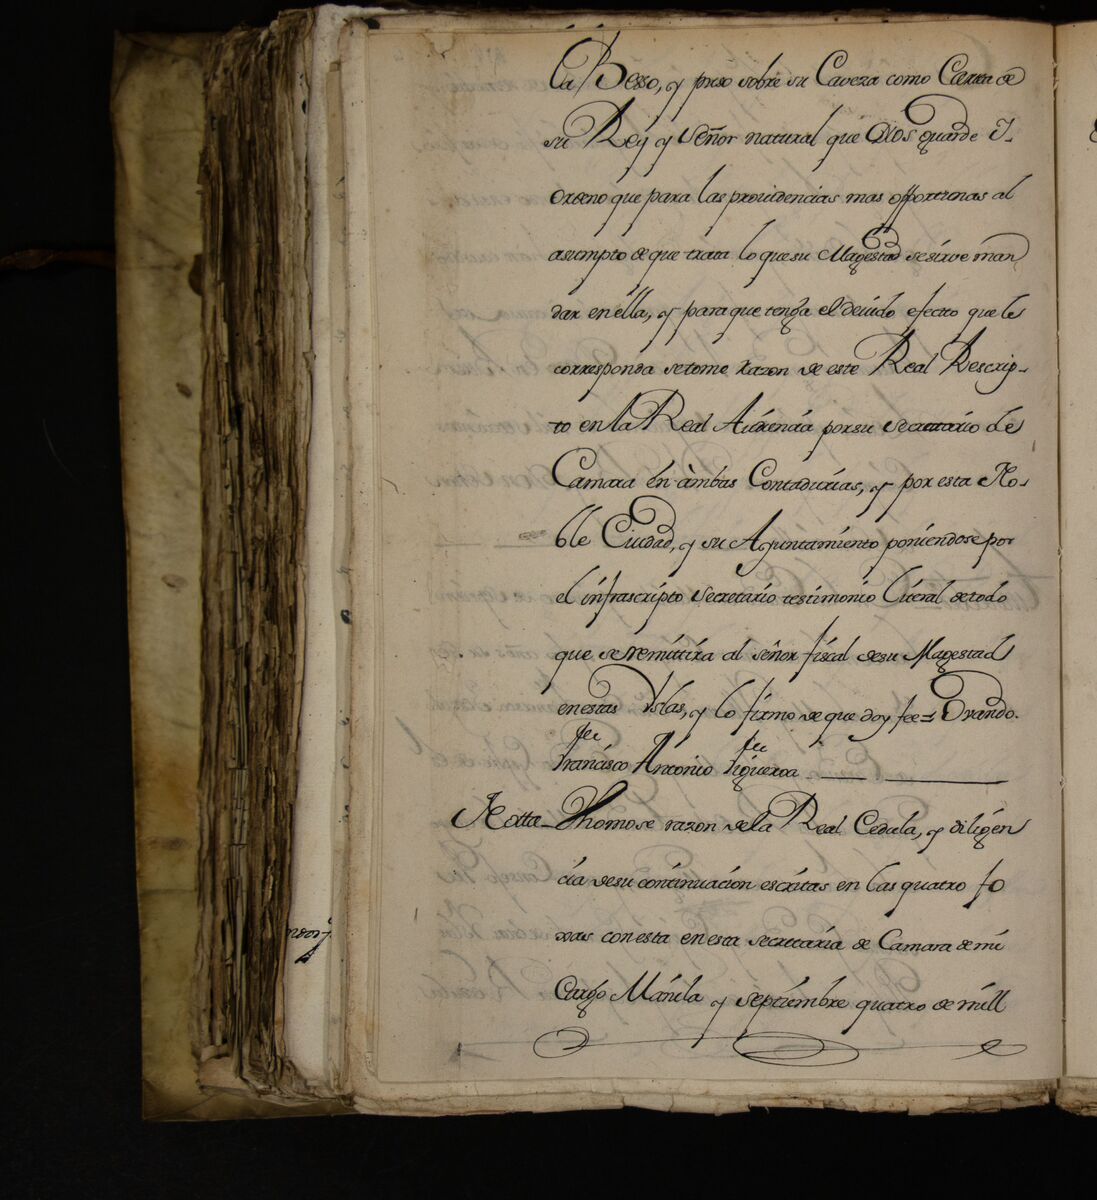 la Besso, y puso sobre su Caveza como Carta de
su Rey y Señor natural que Dios guarde Y-
ordeno que para las providencias mas opportunas al
asumpto de que trata lo que su Magestad se sirve man
dar en ella, y para que tenga el devido efecto que le
corresponda se tome razon de este Real Rescrip-
to en la Real Audiencia por su Secretario de
Camara en àmbas Contadurias, y por esta No-
ble Ciudad, y su Ayuntamiento poniendose por
el infrascripto Secretario testimonio Literal de todo
que se remitira al señor fiscal de su Magestad
en estas Yslas, y lo firmo de que doy fee = Ovando.
Francisco Antonio Figueroa
Notta - Thomose razon de la Real Cedula, y diligen
cia de su continuacion escritas en las quatro fo
xas con esta en esta secretaria de Camara de mi
Cargo Manila y septiembre quatro de mill